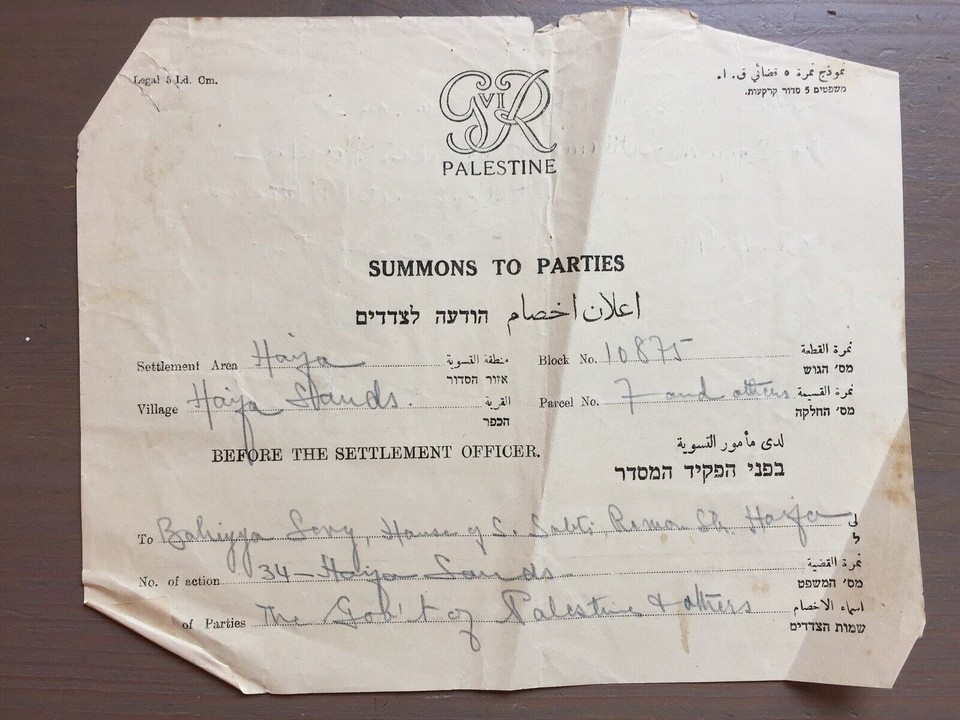 Legal 5 Ld. Cm.
نموذج نمرة ٥ قضائي ق. ا.
משפטים 5 סדור קרקעות.
GVIR
PALESTINE
SUMMONS TO PARTIES
اعلان اخصام הודעה לצדדים
Settlement Area Haifa منطقة التسوية
אזור הסדור
Block No. 10875 نمرة القطعة
מס׳ הגוש
Village Haifa Sands. القرية
הכפר
Parcel No. 7 and others نمرة القسيمة
מס׳ החלקה
BEFORE THE SETTLEMENT OFFICER.
لدى مأمور التسوية
בפני הפקיד המסדר
To Bahiyya House of S. St. Haifa لى
ל
No. of action 34 – Haifa Sands نمرة القضية
מס׳ המשפט
of Parties The Gov't of Palestine & others اسماء الاخصام
שמות הצדדים